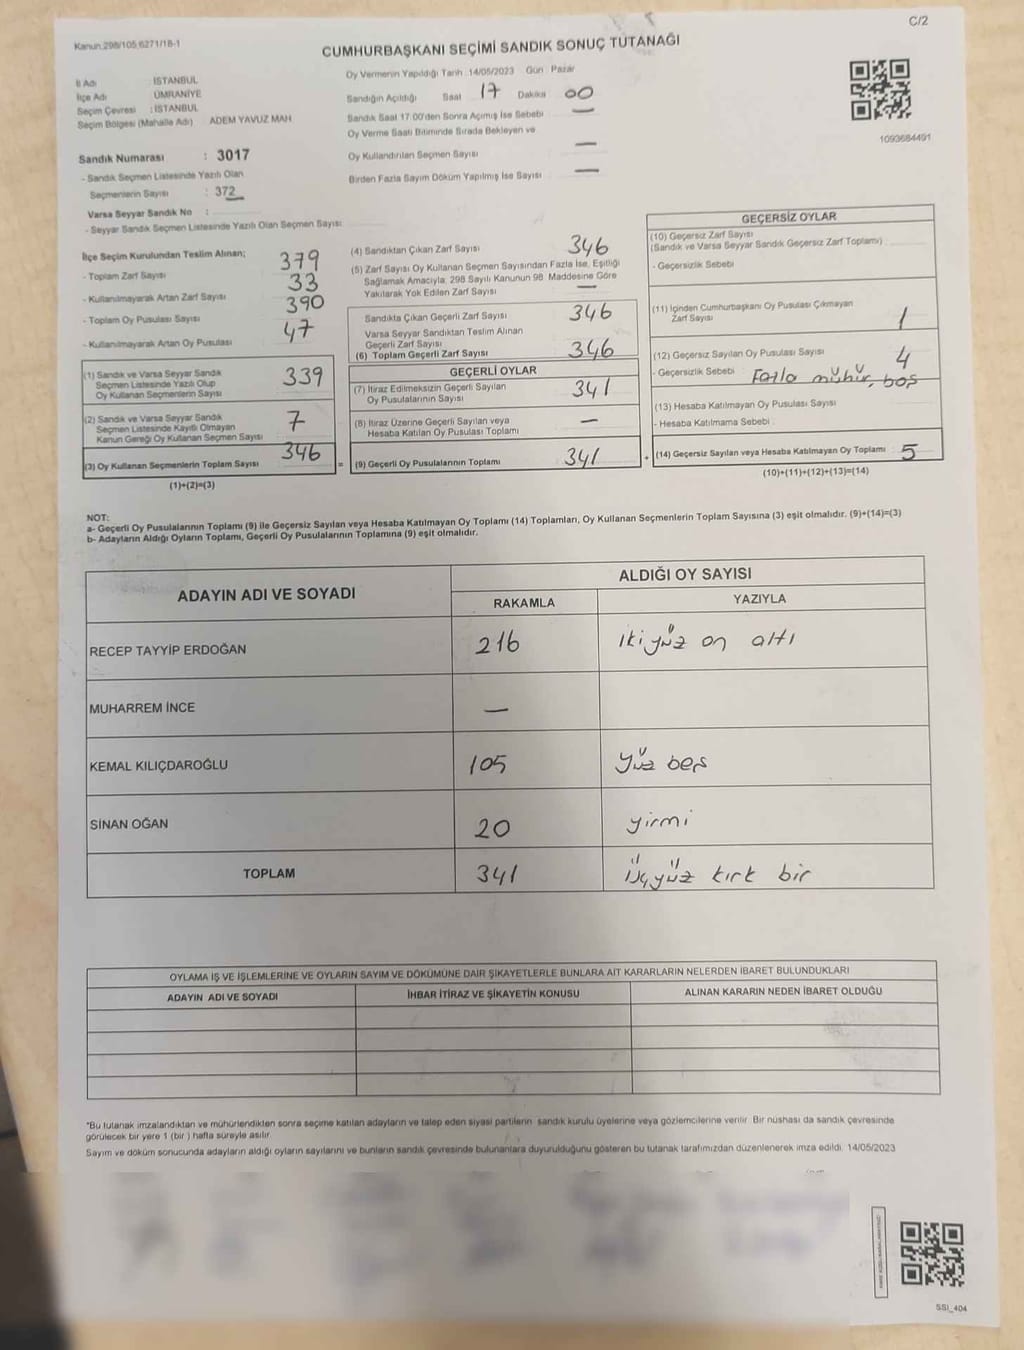 C/2
Kanun:298/105;6271/18-1
CUMHURBAŞKANI SEÇİMİ SANDIK SONUÇ TUTANAĞI
İl Adı : İSTANBUL
İlçe Adı : ÜMRANİYE
Seçim Çevresi : İSTANBUL
Seçim Bölgesi (Mahalle Adı) ADEM YAVUZ MAH
Oy Vermenin Yapıldığı Tarih :14/05/2023 Gün : Pazar
Sandığın Açıldığı Saat 17 Dakika 00
Sandık Saat 17.00'den Sonra Açımış İse Sebebi —
Oy Verme Saati Bitiminde Sırada Bekleyen ve
Oy Kullandırılan Seçmen Sayısı —
Birden Fazla Sayım Döküm Yapılmış İse Sayısı —
1093684491
Sandık Numarası : 3017
- Sandık Seçmen Listesinde Yazılı Olan
Seçmenlerin Sayısı : 372
Varsa Seyyar Sandık No :
- Seyyar Sandık Seçmen Listesinde Yazılı Olan Seçmen Sayısı:
İlçe Seçim Kurulundan Teslim Alınan;
- Toplam Zarf Sayısı 379
- Kullanılmayarak Artan Zarf Sayısı 33
- Toplam Oy Pusulası Sayısı 390
- Kullanılmayarak Artan Oy Pusulası 47
(1) Sandık ve Varsa Seyyar Sandık
Seçmen Listesinde Yazılı Olup
Oy Kullanan Seçmenlerin Sayısı 339
(2) Sandık ve Varsa Seyyar Sandık
Seçmen Listesinde Kayıtlı Olmayan
Kanun Gereği Oy Kullanan Seçmen Sayısı 7
(3) Oy Kullanan Seçmenlerin Toplam Sayısı 346
(1)+(2)=(3)
(4) Sandıktan Çıkan Zarf Sayısı 346
(5) Zarf Sayısı Oy Kullanan Seçmen Sayısından Fazla İse, Eşitliği
Sağlamak Amacıyla, 298 Sayılı Kanunun 98. Maddesine Göre
Yakılarak Yok Edilen Zarf Sayısı —
Sandıkta Çıkan Geçerli Zarf Sayısı 346
Varsa Seyyar Sandıktan Teslim Alınan
Geçerli Zarf Sayısı
(6) Toplam Geçerli Zarf Sayısı 346
GEÇERLİ OYLAR
(7) İtiraz Edilmeksizin Geçerli Sayılan
Oy Pusulalarının Sayısı 341
(8) İtiraz Üzerine Geçerli Sayılan veya
Hesaba Katılan Oy Pusulası Toplamı —
= (9) Geçerli Oy Pusulalarının Toplamı 341
GEÇERSİZ OYLAR
(10) Geçersiz Zarf Sayısı
(Sandık ve Varsa Seyyar Sandık Geçersiz Zarf Toplamı)
- Geçersizlik Sebebi
(11) İçinden Cumhurbaşkanı Oy Pusulası Çıkmayan
Zarf Sayısı 1
(12) Geçersiz Sayılan Oy Pusulası Sayısı 4
- Geçersizlik Sebebi Fazla mühür, boş
(13) Hesaba Katılmayan Oy Pusulası Sayısı
- Hesaba Katılmama Sebebi
+ (14) Geçersiz Sayılan veya Hesaba Katılmayan Oy Toplamı : 5
(10)+(11)+(12)+(13)=(14)
NOT:
a- Geçerli Oy Pusulalarının Toplamı (9) ile Geçersiz Sayılan veya Hesaba Katılmayan Oy Toplamı (14) Toplamları, Oy Kullanan Seçmenlerin Toplam Sayısına (3) eşit olmalıdır. (9)+(14)=(3)
b- Adayların Aldığı Oyların Toplamı, Geçerli Oy Pusulalarının Toplamına (9) eşit olmalıdır.
ADAYIN ADI VE SOYADI
ALDIĞI OY SAYISI
RAKAMLA YAZIYLA
RECEP TAYYİP ERDOĞAN 216 iki yüz on altı
MUHARREM İNCE —
KEMAL KILIÇDAROĞLU 105 yüz beş
SİNAN OĞAN 20 yirmi
TOPLAM 341 üçyüz kırk bir
OYLAMA İŞ VE İŞLEMLERİNE VE OYLARIN SAYIM VE DÖKÜMÜNE DAİR ŞİKAYETLERLE BUNLARA AİT KARARLARIN NELERDEN İBARET BULUNDUKLARI
ADAYIN ADI VE SOYADI İHBAR İTİRAZ VE ŞİKAYETİN KONUSU ALINAN KARARIN NEDEN İBARET OLDUĞU
*Bu tutanak imzalandıktan ve mühürlendikten sonra seçime katılan adayların ve talep eden siyasi partilerin sandık kurulu üyelerine veya gözlemcilerine verilir. Bir nüshası da sandık çevresinde
görülecek bir yere 1 (bir ) hafta süreyle asılır.
Sayım ve döküm sonucunda adayların aldığı oyların sayılarını ve bunların sandık çevresinde bulunanlara duyurulduğunu gösteren bu tutanak tarafımızdan düzenlenerek imza edildi. 14/05/2023
SSI_404